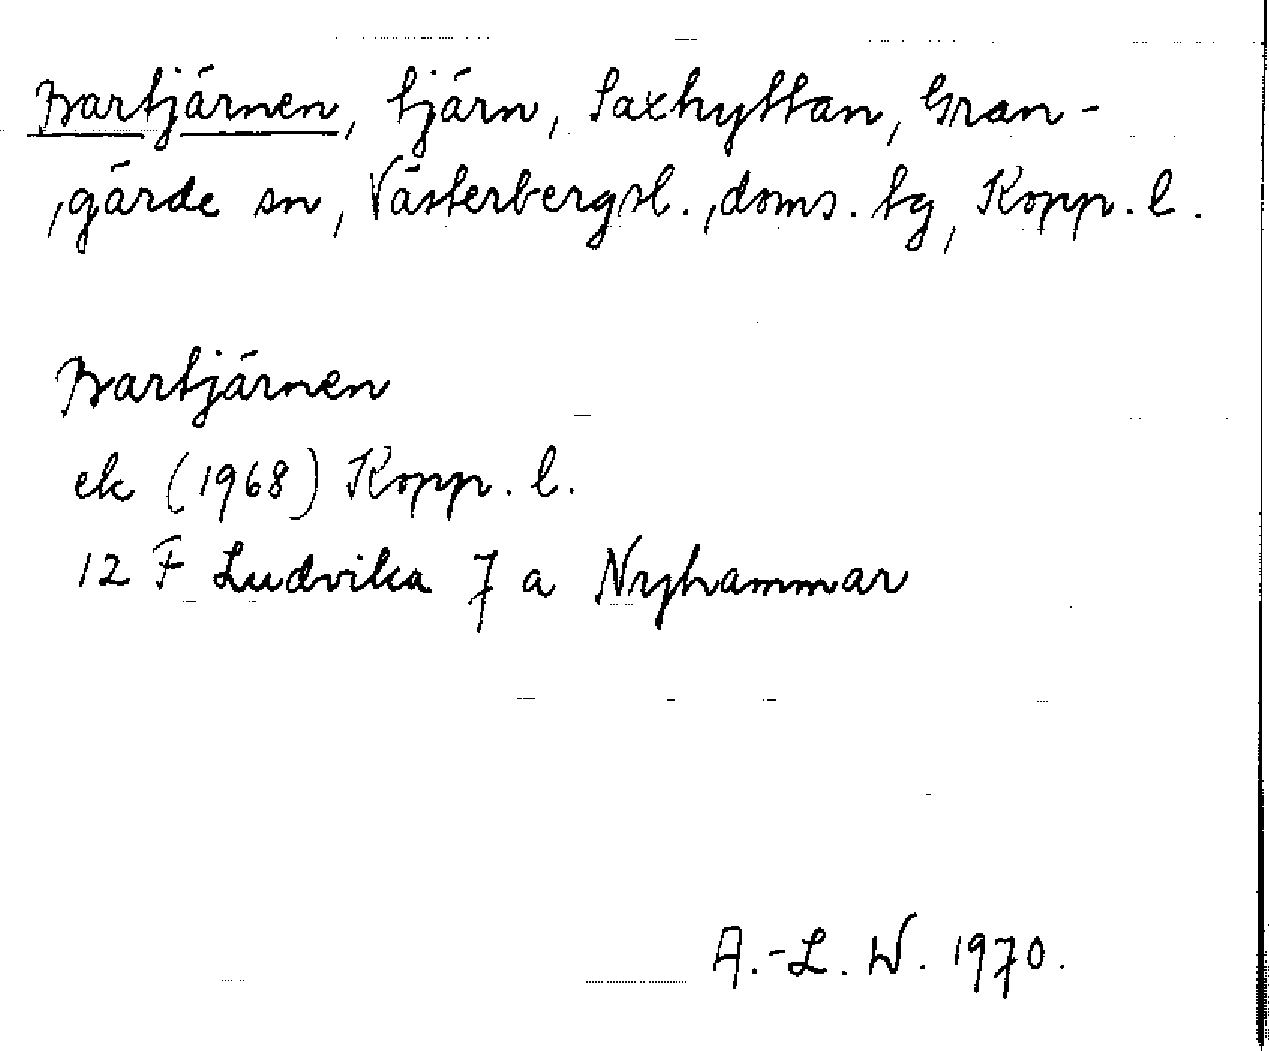 Bartjärnen, tjärn, Saxhyttan, Gran-
gärde sn, Västerbergsl. doms. tg, Kopp. l.
Bartjärnen
ek (1968) Kopp. l.
12 F Ludvika 7 a Nyhammar
A.-L. W. 1970.